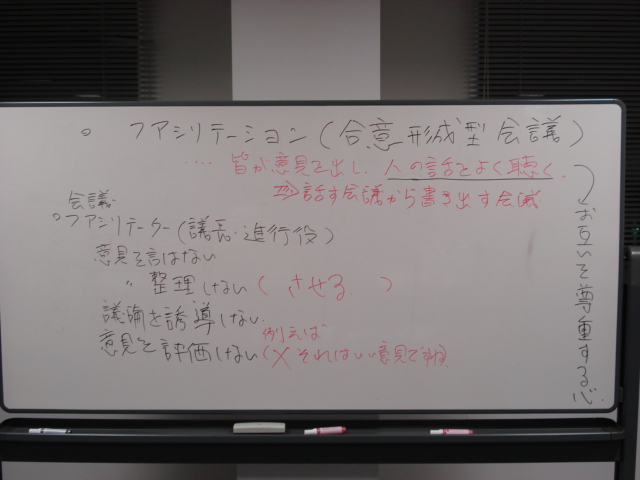 ○ ファシリテーション(合意形成型会議)
‥‥ 皆が意見を出し、人の話をよく聴く。
⇒話す会議から書き出す会議
お互いを尊重する心
会議
○ファシリテーター(議長・進行役)
意見を言はない
〃 整理しない(させる )
議論を誘導しない
例えば
意見を評価しない(×それはいい意見です